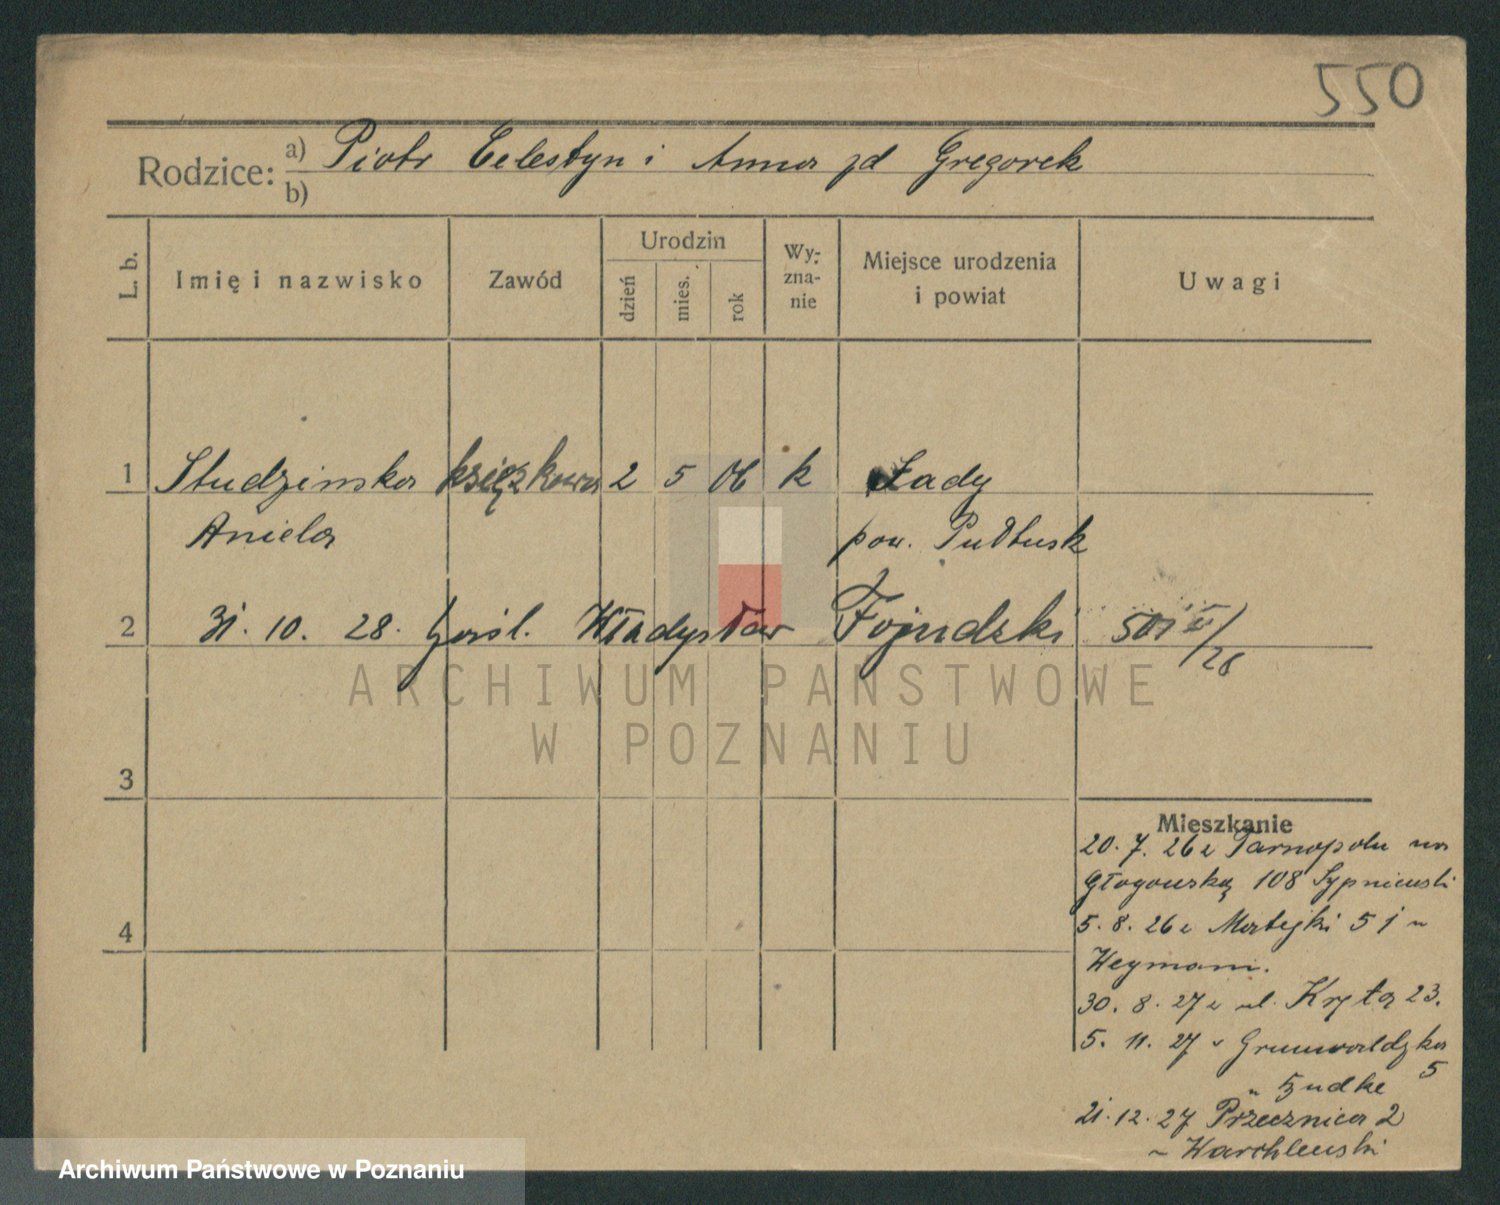 550
Rodzice: a) Piotr Celestyn i Anna zd Gregorek
b)
L. b. Imię i nazwisko Zawód Urodzin dzień mies. rok Wy-zna-nie Miejsce urodzenia i powiat Uwagi
1 Studzinska księżkowa 2 5 06 k Łady
Aniela pow. Pułtusk
2 31. 10. 28. Władysław Fojudzki 501
28
ARCHIWUM PAŃSTWOWE
W POZNANIU
3
Mieszkanie
20. 7. 26 z Tarnopolu na
Głogowską 108 Sypniewski
4
5. 8. 26 z Matejki 51 u
Weymann.
30. 8. 27 z ul. Kręta 23.
5. 11. 27 Grunwaldzka
5
21. 12. 27 Przecznica 2
Karchlewski
Archiwum Państwowe w Poznaniu